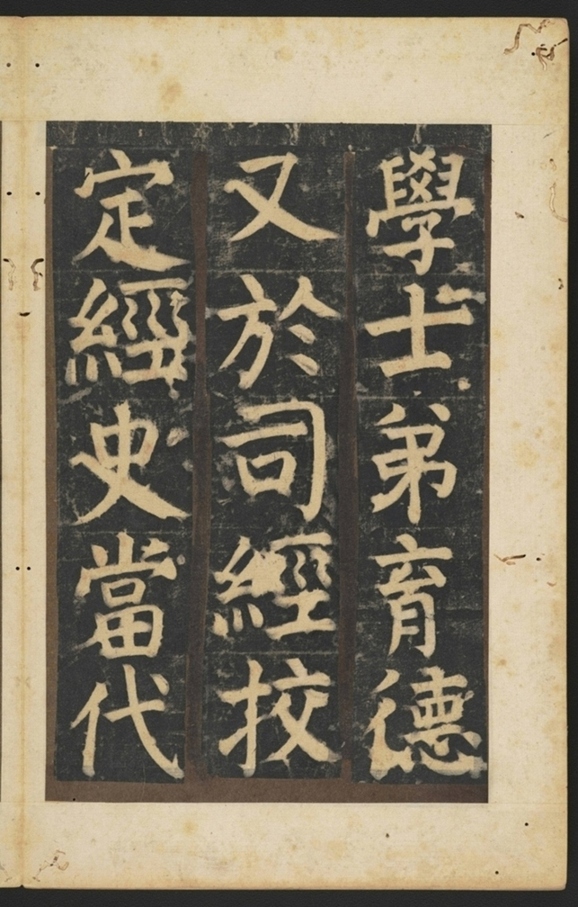 學士弟育德
又於司經挍
定經史當代